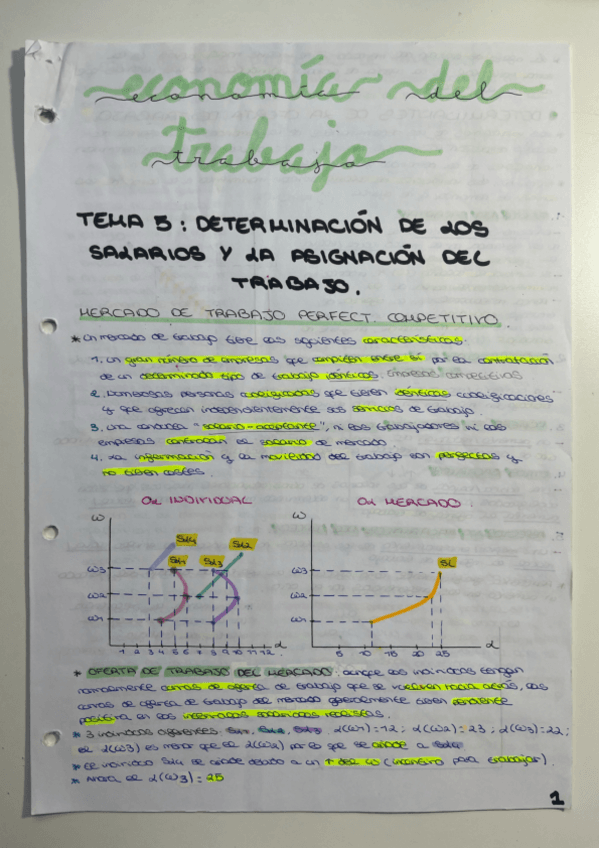 economía del
trabajo
TEMA 5: DETERMINACIÓN DE LOS
SALARIOS Y LA ASIGNACIÓN DEL
TRABAJO.
MERCADO DE TRABAJO PERFECT. COMPETITIVO.
* un mercado de trabajo tiene las siguientes características:
1. un gran número de empresas que compiten entre sí por la contratación
de un determinado tipo de trabajo idénticos. empresas competitivas
2. numerosas personas cualificadas que tienen idénticas cualificaciones
y que ofrecen independientemente sus servicios de trabajo.
3. una conducta "salario-aceptante", ni los trabajadores ni las
empresas controlan el salario de mercado.
4. La información y la movilidad del trabajo son perfectas y
no tienen costes.
OL INDIVIDUAL
OL MERCADO
ω
SL4
SL1
SL3
SL2
ω3
ω2
ω1
1 2 3 4 5 6 7 8 9 10 11 12
L
ω
SL
ω3
ω2
ω1
5 10 15 20 25
L
* OFERTA DE TRABAJO DEL MERCADO: aunque los individuos tengan
normalmente curvas de oferta de trabajo que se vuelven hacia atrás, las
curvas de oferta de trabajo del mercado generalmente tienen pendiente
positiva en los intervalos salariales realistas.
* 3 individuos diferentes SL1, SL2, SL3. L(ω1)=12; L(ω2)=23; L(ω3)=22;
el L(ω3) es menor que el L(ω2) por lo que se añade a SL4.
* el individuo SL4 se añade debido a un ↑ del ω (incentivo para trabajar).
* Ahora el L(ω3)=25
1